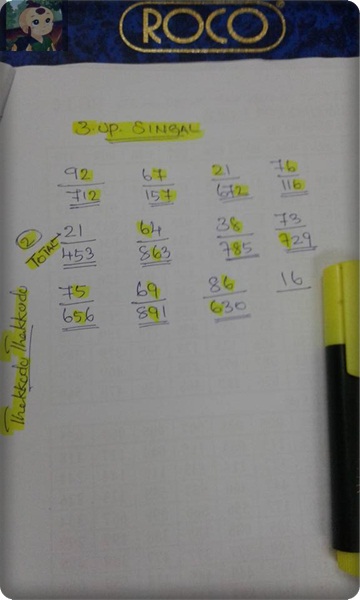 ROCO
3. UP. SINGAL
92 67 21 76
712 157 672 116
2 TOTAL 21 64 38 73
453 863 785 729
75 69 86 16
656 891 630
Thekkodo Thekkodo